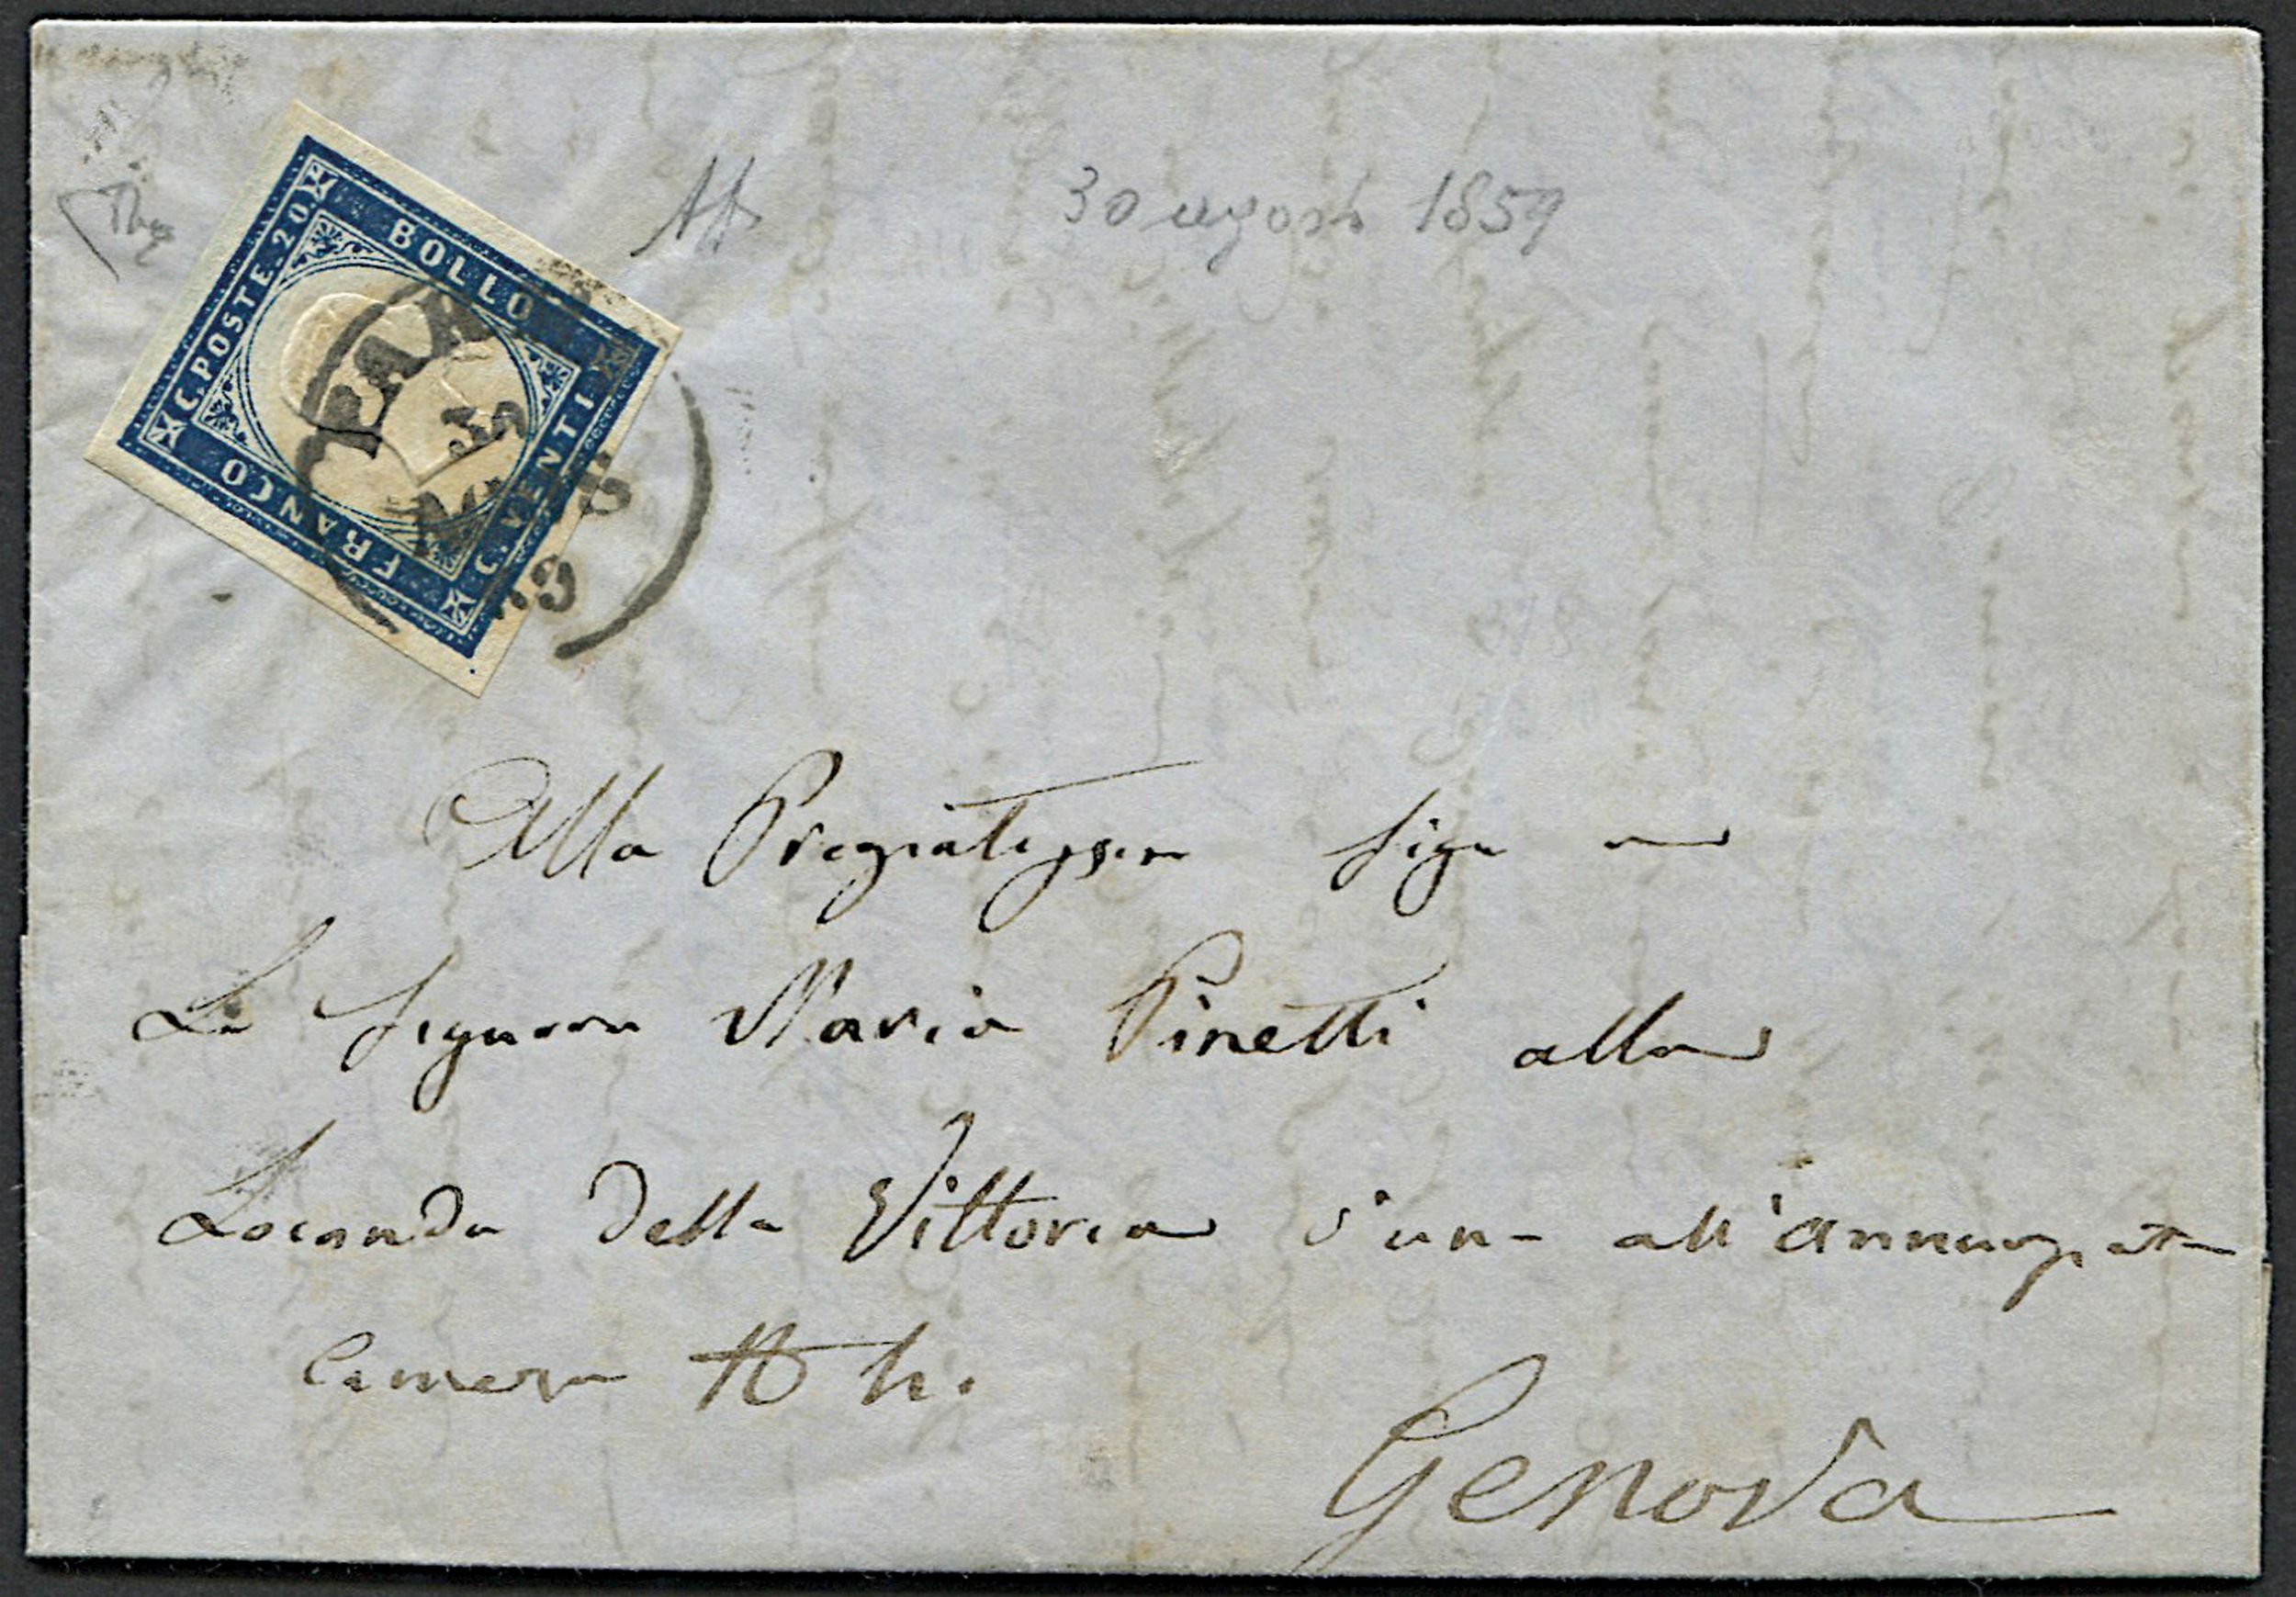 C. POSTE. 20.
BOLLO
C. VENTI
FRANCO
PAR
59
30 agosto 1859
Alla Pregiatissima Sigra
La Signora Maria Pinetti alla
Locanda della Vittoria all'Annunziata
Camera
Genova